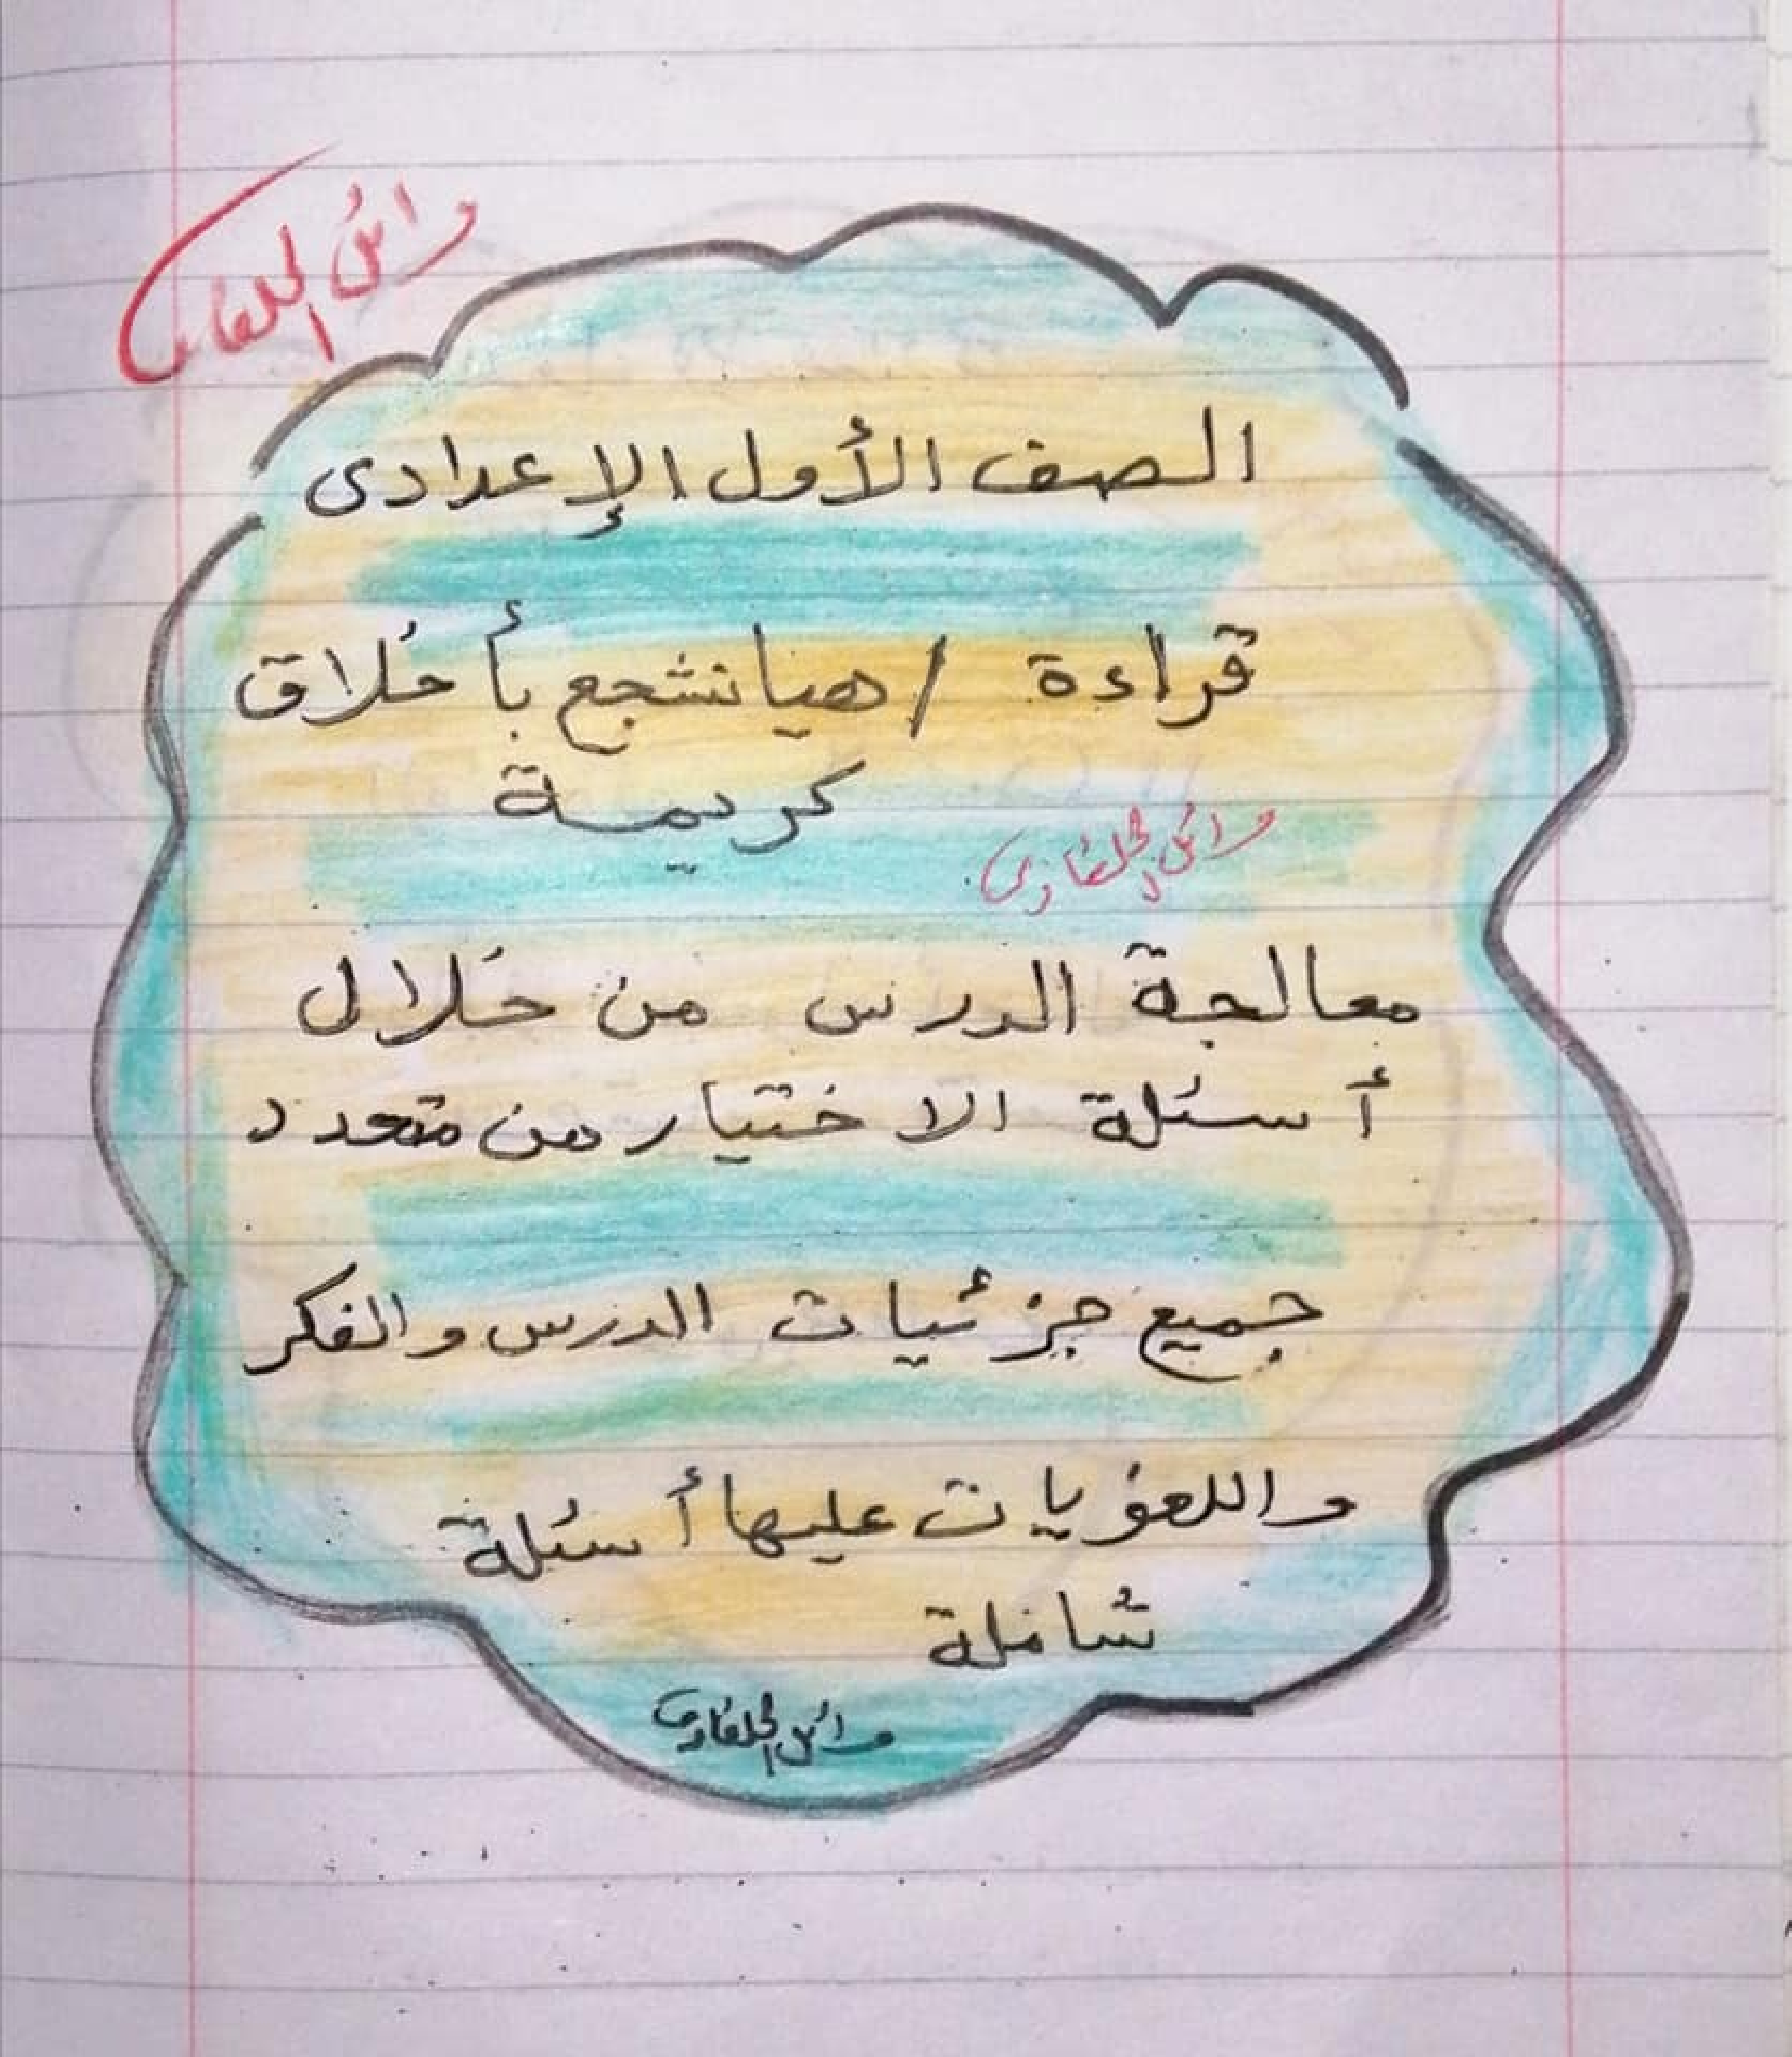 وائل الحلفاوى
الصف الأول الإعدادى
قراءة / هيا نشجع بأخلاق
كريمة
وائل الحلفاوى
معالجة الدرس من خلال
أسئلة الاختيار من متعدد
جميع جزئيات الدرس والفكر
واللغويات عليها أسئلة
شاملة
وائل الحلفاوى